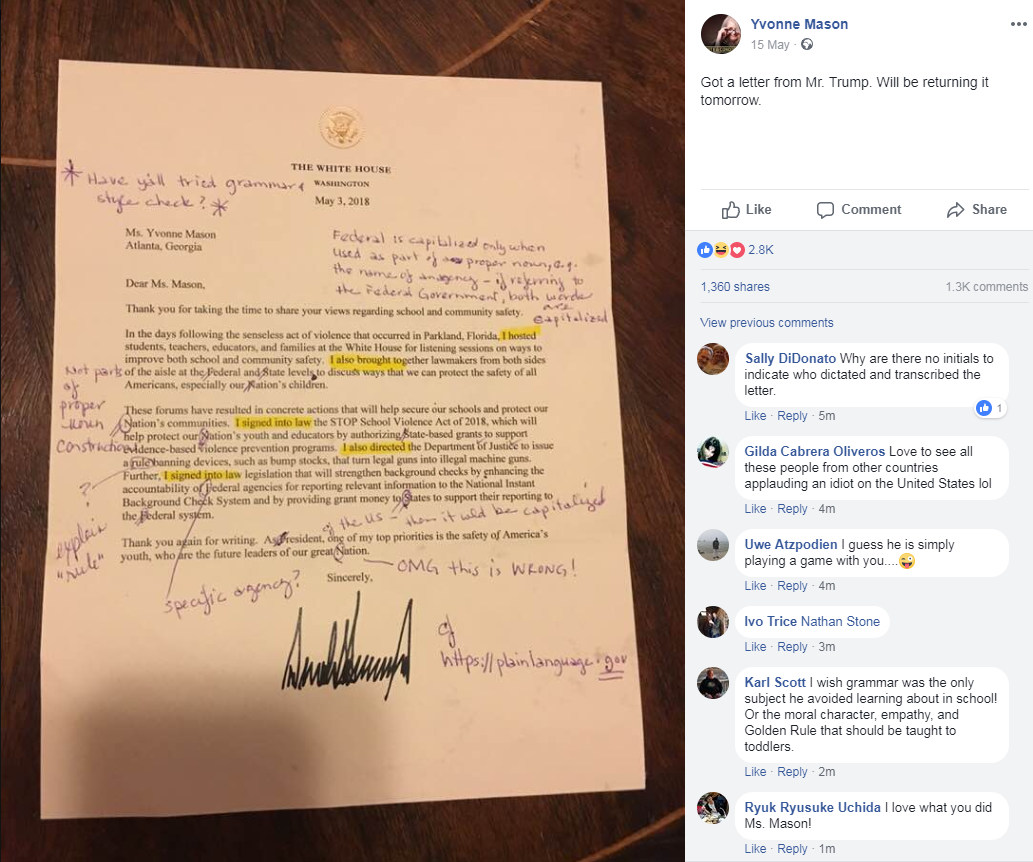 THE WHITE HOUSE
WASHINGTON
May 3, 2018
* Have y'all tried grammar &
style check? *
Ms. Yvonne Mason
Atlanta, Georgia
Federal is capitalized only when
used as part of proper noun, e.g.
the name of an agency - if referring to
the Federal Government, both words
are
capitalized
Dear Ms. Mason,
Thank you for taking the time to share your views regarding school and community safety.
In the days following the senseless act of violence that occurred in Parkland, Florida, I hosted
students, teachers, educators, and families at the White House for listening sessions on ways to
improve both school and community safety. I also brought together lawmakers from both sides
of the aisle at the Federal and State levels to discuss ways that we can protect the safety of all
Americans, especially our Nation's children.
Not part
of
proper
noun
construction
These forums have resulted in concrete actions that will help secure our schools and protect our
Nation's communities. I signed into law the STOP School Violence Act of 2018, which will
help protect our Nation's youth and educators by authorizing State-based grants to support
evidence-based violence prevention programs. I also directed the Department of Justice to issue
a rule banning devices, such as bump stocks, that turn legal guns into illegal machine guns.
Further, I signed into law legislation that will strengthen background checks by enhancing the
accountability of Federal agencies for reporting relevant information to the National Instant
Background Check System and by providing grant money to States to support their reporting to
the Federal system.
?
explain
"rule"
of the US - then it would be capitalized
Thank you again for writing. As President, one of my top priorities is the safety of America's
youth, who are the future leaders of our great Nation.
OMG this is WRONG!
specific agency?
Sincerely,
https://plainlanguage.gov
Yvonne Mason
15 May
Got a letter from Mr. Trump. Will be returning it
tomorrow.
Like Comment Share
2.8K
1,360 shares 1.3K comments
View previous comments
Sally DiDonato Why are there no initials to
indicate who dictated and transcribed the
letter.
1
Like · Reply · 5m
Gilda Cabrera Oliveros Love to see all
these people from other countries
applauding an idiot on the United States lol
Like · Reply · 4m
Uwe Atzpodien I guess he is simply
playing a game with you....😜
Like · Reply · 4m
Ivo Trice Nathan Stone
Like · Reply · 3m
Karl Scott I wish grammar was the only
subject he avoided learning about in school!
Or the moral character, empathy, and
Golden Rule that should be taught to
toddlers.
Like · Reply · 2m
Ryuk Ryusuke Uchida I love what you did
Ms. Mason!
Like · Reply · 1m